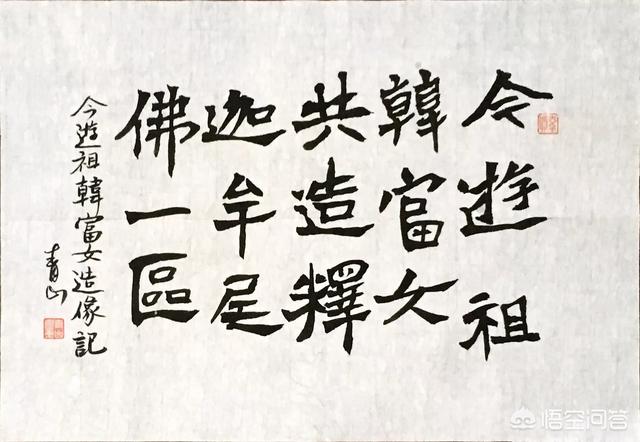 今遊祖
韓富女
共造釋
迦牟尼
佛一區
今遊祖韓富女造像記
青山
悟空问答